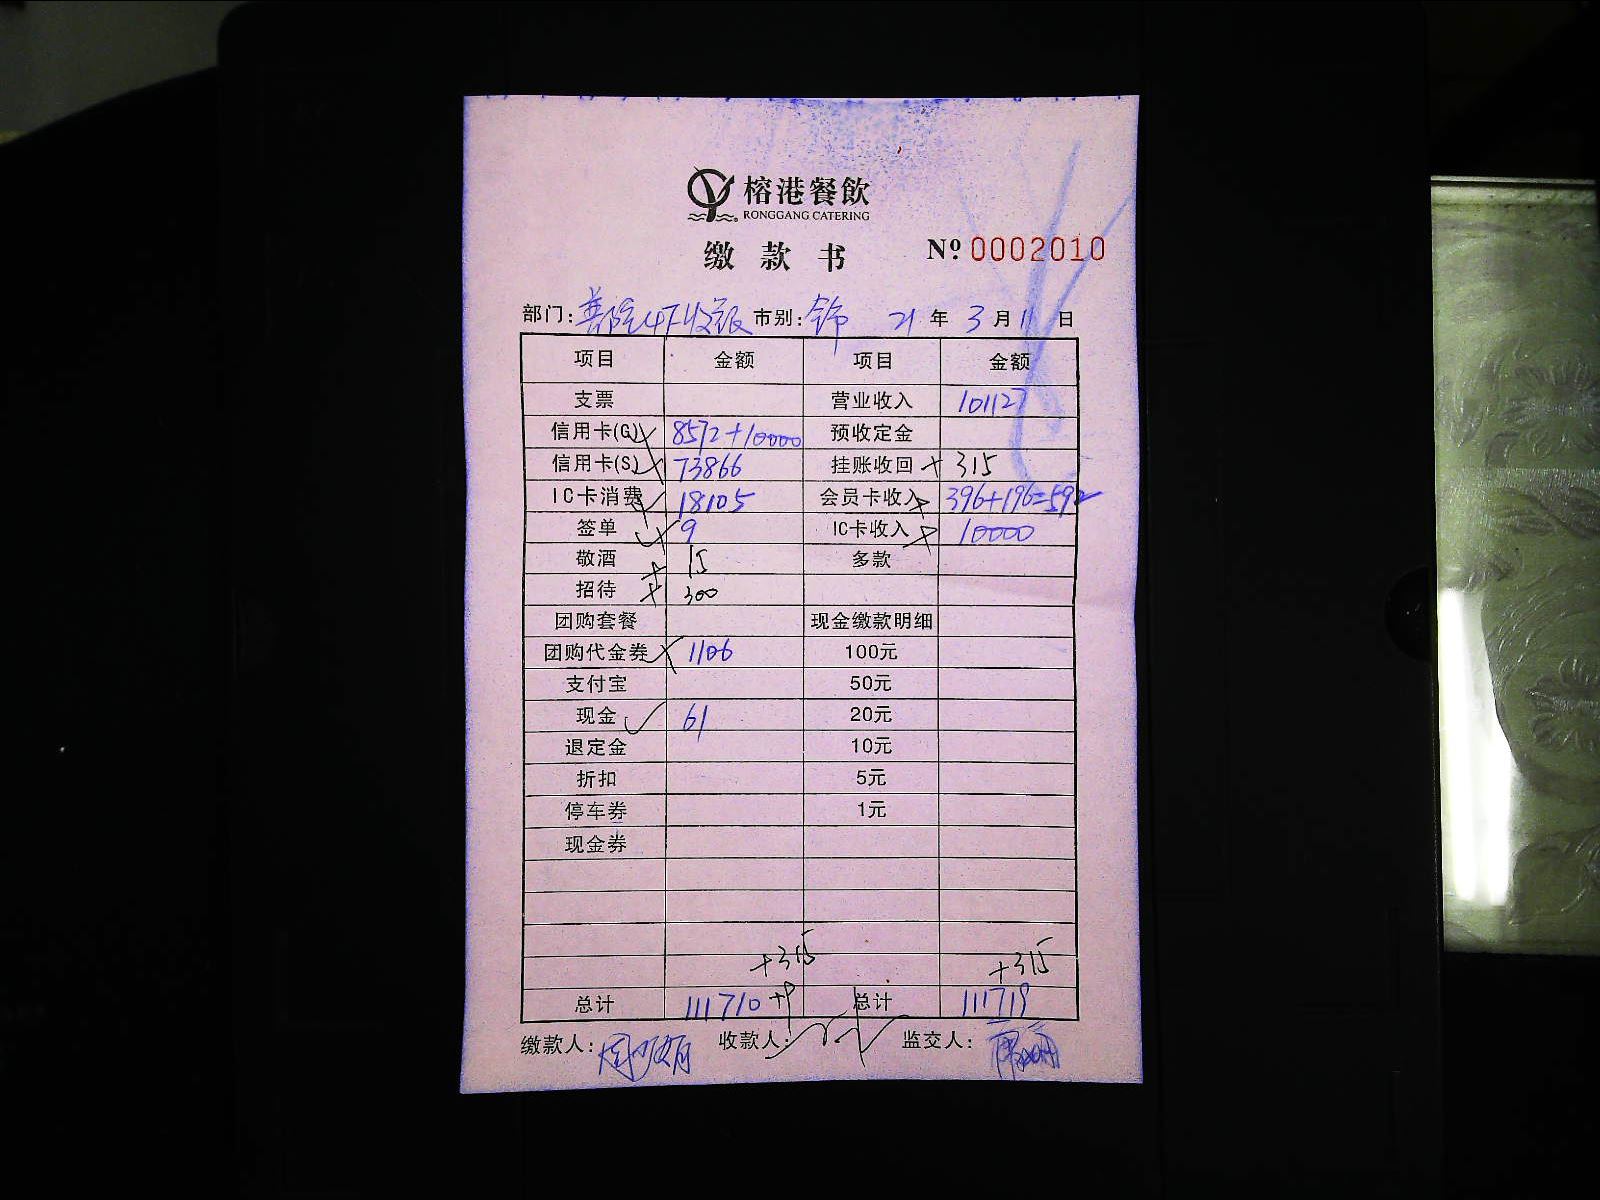 榕港餐飲
RONGGANG CATERING
缴款书 № 0002010
部门: 4F收银 市别: 21 年 3 月 11 日
项目 金额 项目 金额
支票 营业收入 101127
信用卡(G) 8572+10000 预收定金
信用卡(S) 73866 挂账收回 + 315
IC卡消费 18105 会员卡收入 396+196=592
签单 9 IC卡收入 10000
敬酒 15 多款
招待 300
团购套餐 现金缴款明细
团购代金券 1106 100元
支付宝 50元
现金 61 20元
退定金 10元
折扣 5元
停车券 1元
现金券
+315 +315
总计 111710 +9 总计 111719
缴款人: 收款人: 监交人: